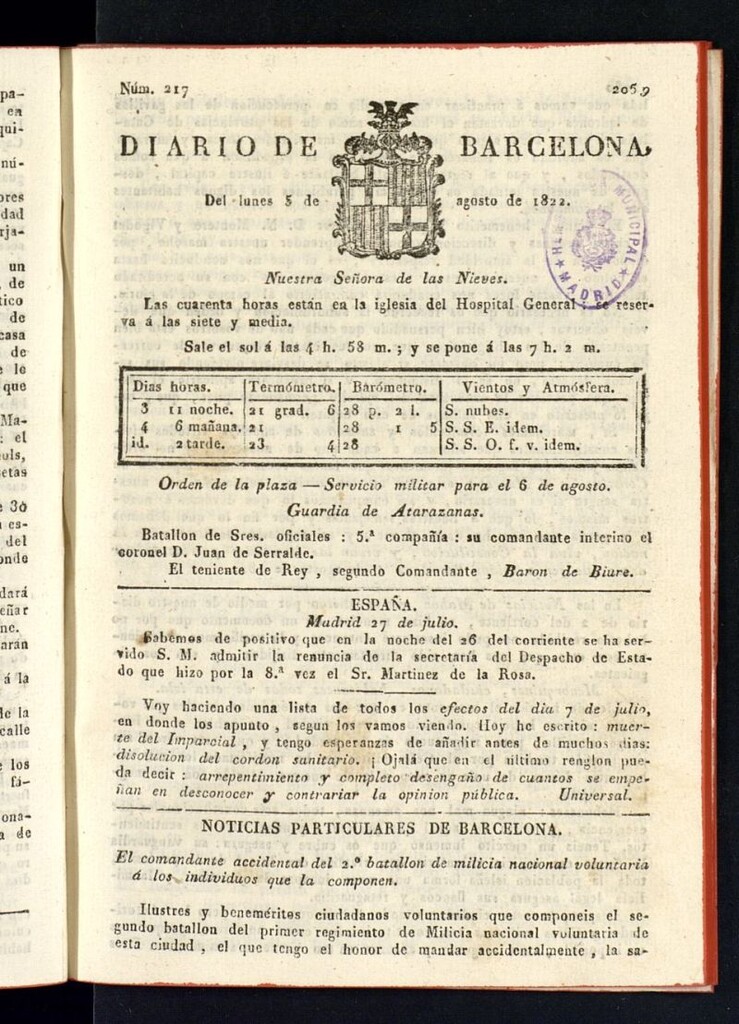 Núm. 217
2069
DIARIO DE BARCELONA,
Del lunes 5 de agosto de 1822.
MUNICIPAL
MADRID
Nuestra Señora de las Nieves.
Las cuarenta horas están en la iglesia del Hospital General: se reser-
va á las siete y media.
Sale el sol á las 4 h. 58 m.; y se pone á las 7 h. 2 m.
Dias horas. Termómetro. Barómetro. Vientos y Atmósfera.
3 11 noche. 21 grad. 6 28 p. 2 l. S. nubes.
4 6 mañana. 21 28 1 5 S. S. E. idem.
id. 2 tarde. 23 4 28 S. S. O. f. v. idem.
Orden de la plaza — Servicio militar para el 6 de agosto.
Guardia de Atarazanas.
Batallon de Sres. oficiales : 5.ª compañía : su comandante interino el
coronel D. Juan de Serralde.
El teniente de Rey , segundo Comandante , Baron de Biure.
ESPAÑA.
Madrid 27 de julio.
Sabemos de positivo que en la noche del 26 del corriente se ha ser-
vido S. M. admitir la renuncia de la secretaría del Despacho de Esta-
do que hizo por la 8.ª vez el Sr. Martinez de la Rosa.
Voy haciendo una lista de todos los efectos del dia 7 de julio,
en donde los apunto , segun los vamos viendo. Hoy he escrito : muer-
te del Imparcial , y tengo esperanzas de añadir antes de muchos dias:
disolucion del cordon sanitario. ¡ Ojalá que en el último renglon pue-
da decir : arrepentimiento y completo desengaño de cuantos se empe-
ñan en desconocer y contrariar la opinion pública. Universal.
NOTICIAS PARTICULARES DE BARCELONA.
El comandante accidental del 2.º batallon de milicia nacional voluntaria
á los individuos que la componen.
Ilustres y beneméritos ciudadanos voluntarios que componeis el se-
gundo batallon del primer regimiento de Milicia nacional voluntaria de
esta ciudad , el que tengo el honor de mandar accidentalmente , la sa-
pa-
en
qui-
nú-
ores
dad
rja-
un
de
tico
de
casa
de
e le
que
Ma-
: el
uls,
etas
e 30
es-
del
onde
dará
eñar
ne.
arán
á la
de la
calle
e los
fá-
ona-
a de